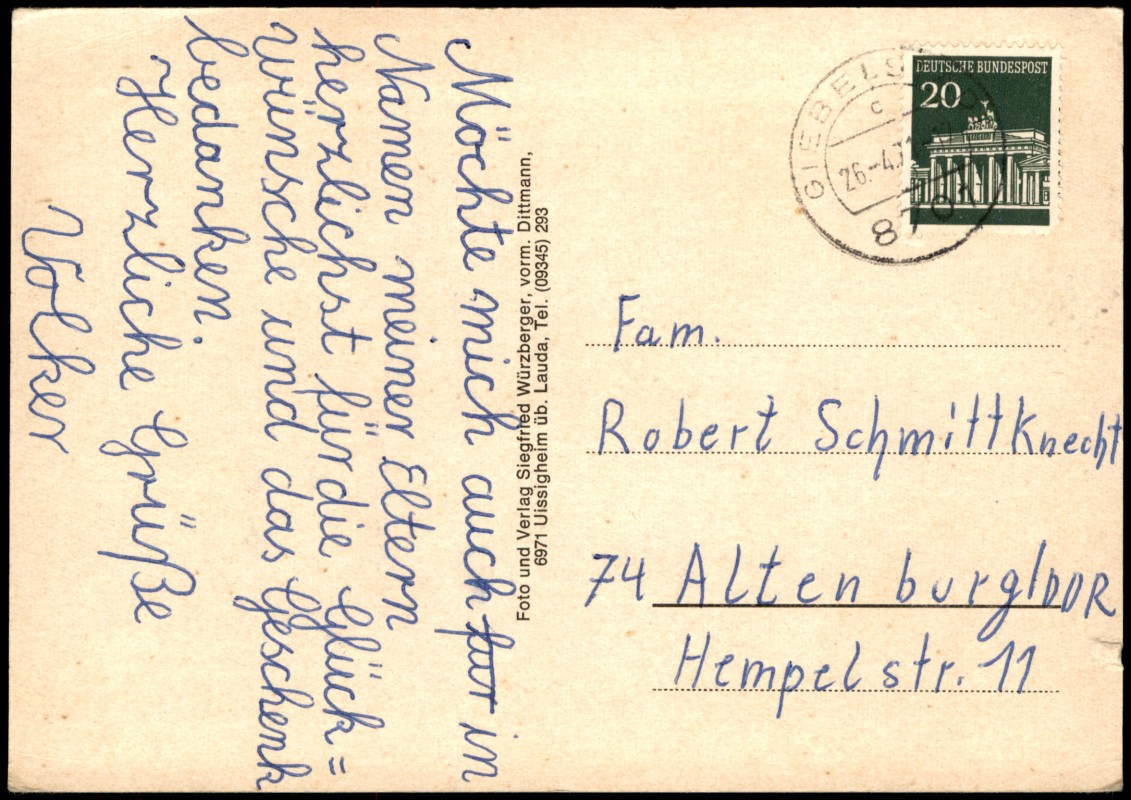 Möchte mich auch für in
Namen meiner Eltern
herzlichst für die Glück=
wünsche und das Geschenk
bedanken.
Herzliche Grüße
Volker
Foto und Verlag Siegfried Würzberger, vorm. Dittmann,
6971 Uissigheim üb. Lauda, Tel. (09345) 293
DEUTSCHE BUNDESPOST
20
26.-4.71
8701
Fam.
Robert Schmittknecht
74 Altenburg/DDR
Hempelstr. 11